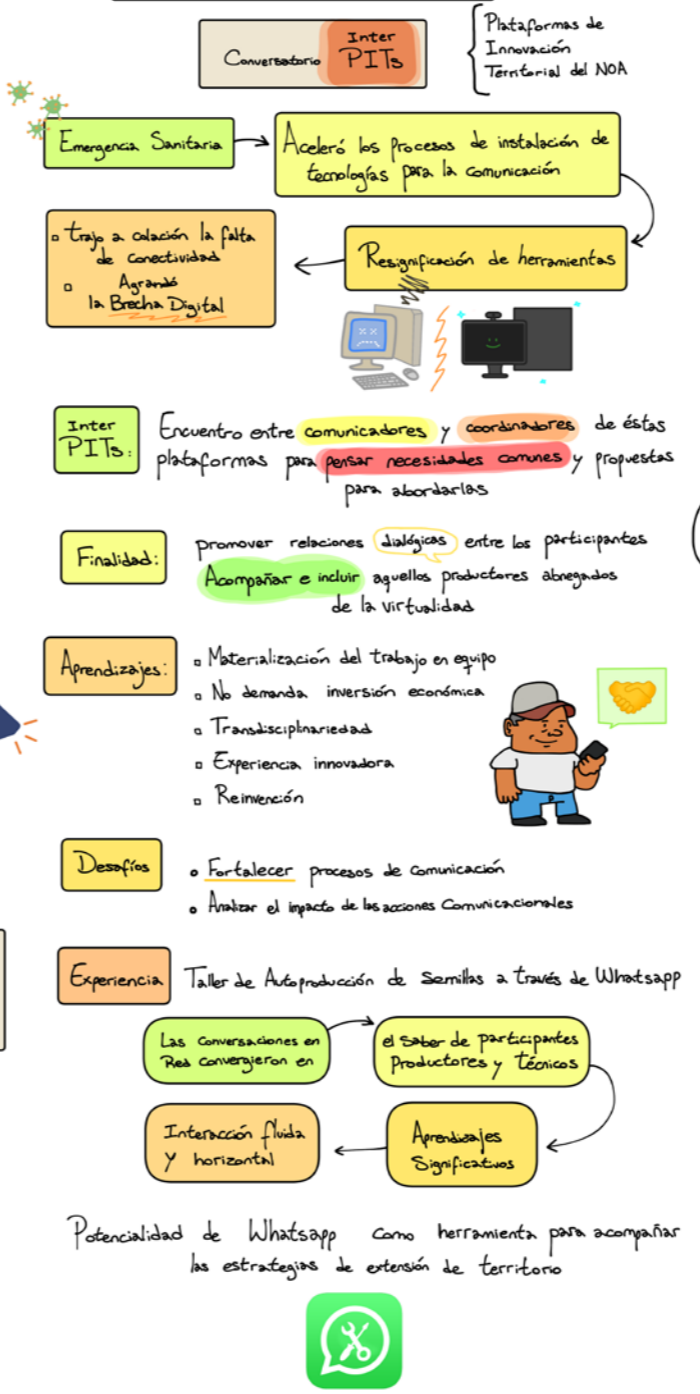 Conversatorio Inter
PITs
Plataformas de
Innovación
Territorial del NOA
Emergencia Sanitaria
Aceleró los Procesos de instalación de
tecnologías para la comunicación
Resignificación de herramientas
trajo a colación la falta
de conectividad
Agrandó
la Brecha Digital
Inter
PITs:
Encuentro entre comunicadores y coordinadores de éstas
plataformas para pensar necesidades comunes y propuestas
para abordarlas
Finalidad:
promover relaciones dialógicas entre los participantes
Acompañar e incluir aquellos productores abnegados
de la virtualidad
Aprendizajes:
Materialización del trabajo en equipo
No demanda inversión económica
Transdisciplinariedad
Experiencia innovadora
Reinvención
Desafíos
Fortalecer procesos de comunicación
Analizar el impacto de las acciones Comunicacionales
Experiencia
Taller de Autoproducción de Semillas a través de Whatsapp
Las Conversaciones en
Red convergieron en
el Saber de participantes
Productores y Técnicos
Aprendizajes
Significativos
Interacción fluida
y horizontal
Potencialidad de Whatsapp como herramienta para acompañar
las estrategias de extensión de territorio